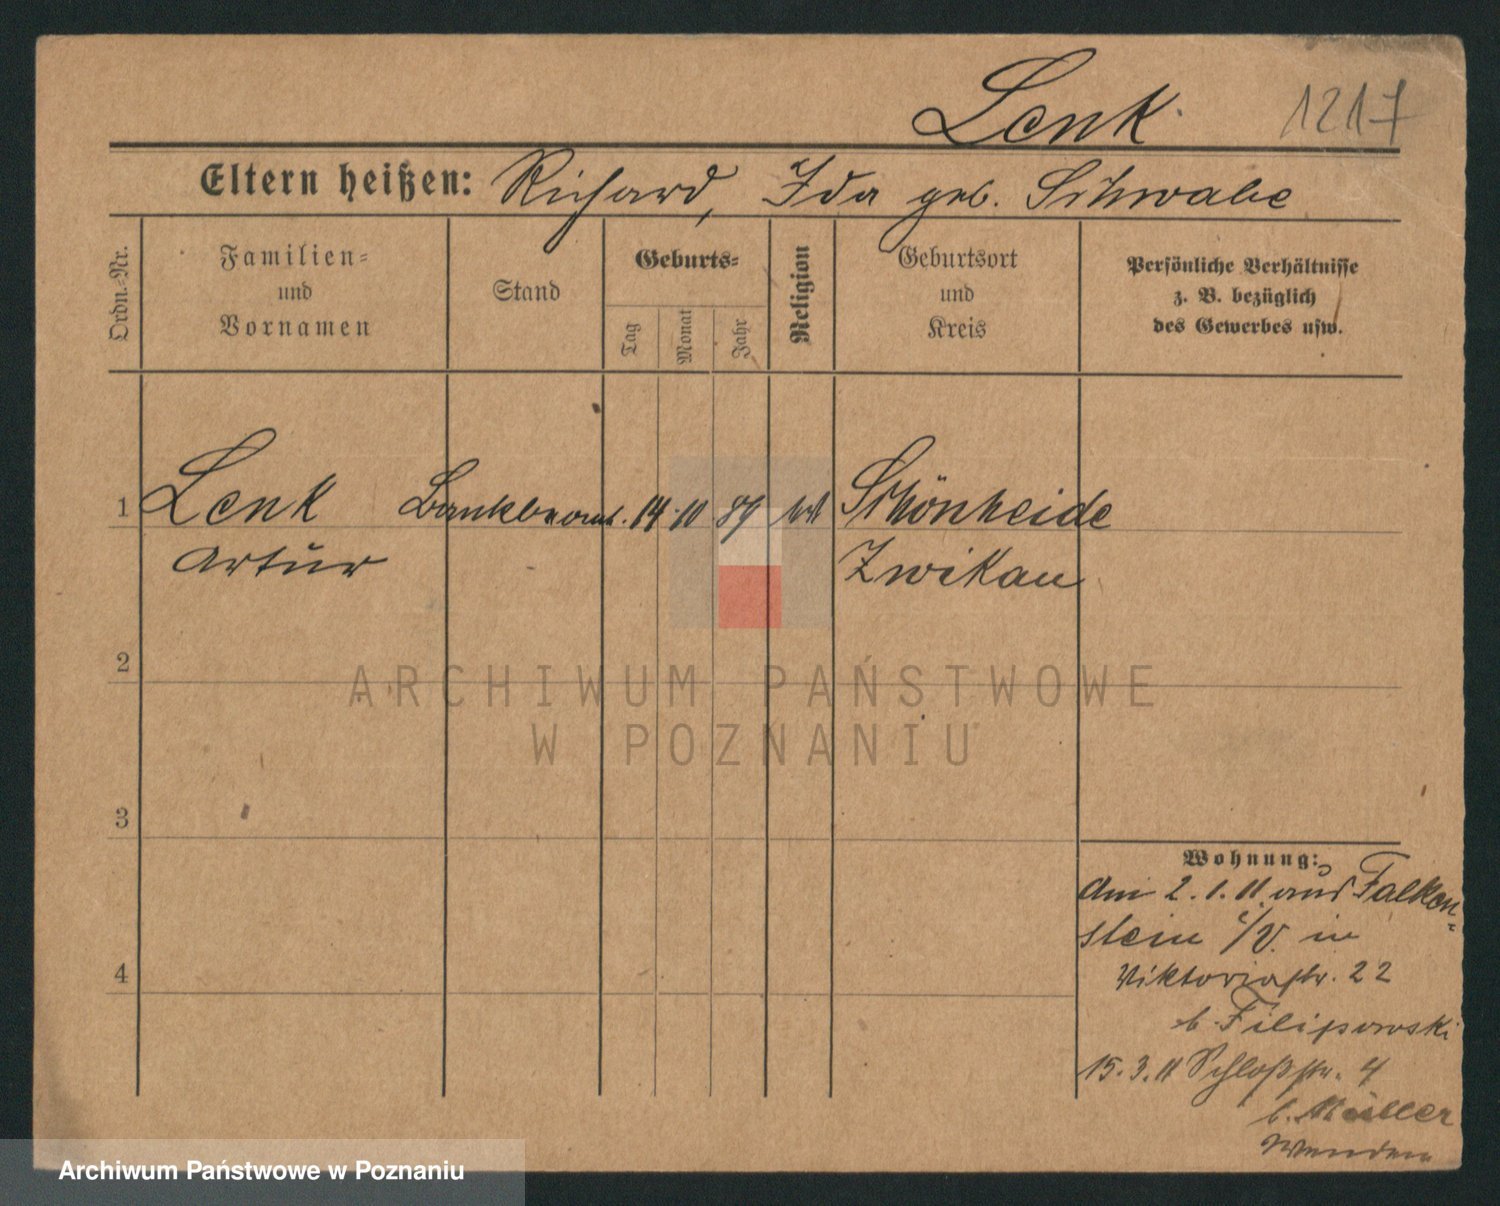 Lenk
1217
Eltern heißen: Richard, Ida geb. Schwabe
Ordn.-Nr.
Familien-
und
Vornamen
Stand
Geburts-
Tag
Monat
Jahr
Religion
Geburtsort
und
Kreis
Persönliche Verhältnisse
z. B. bezüglich
des Gewerbes usw.
1 Lenk Bankbeamt. 14. 10 Schönheide
Artur Zwikau
2
3
4
Wohnung:
Am 2.1.11 aus Falken-
stein i/V. in
Viktoriastr. 22
b. Filipowski
15.3.11 Schloßstr. 4
b. Müller
ARCHIWUM PAŃSTWOWE
W POZNANIU
Archiwum Państwowe w Poznaniu